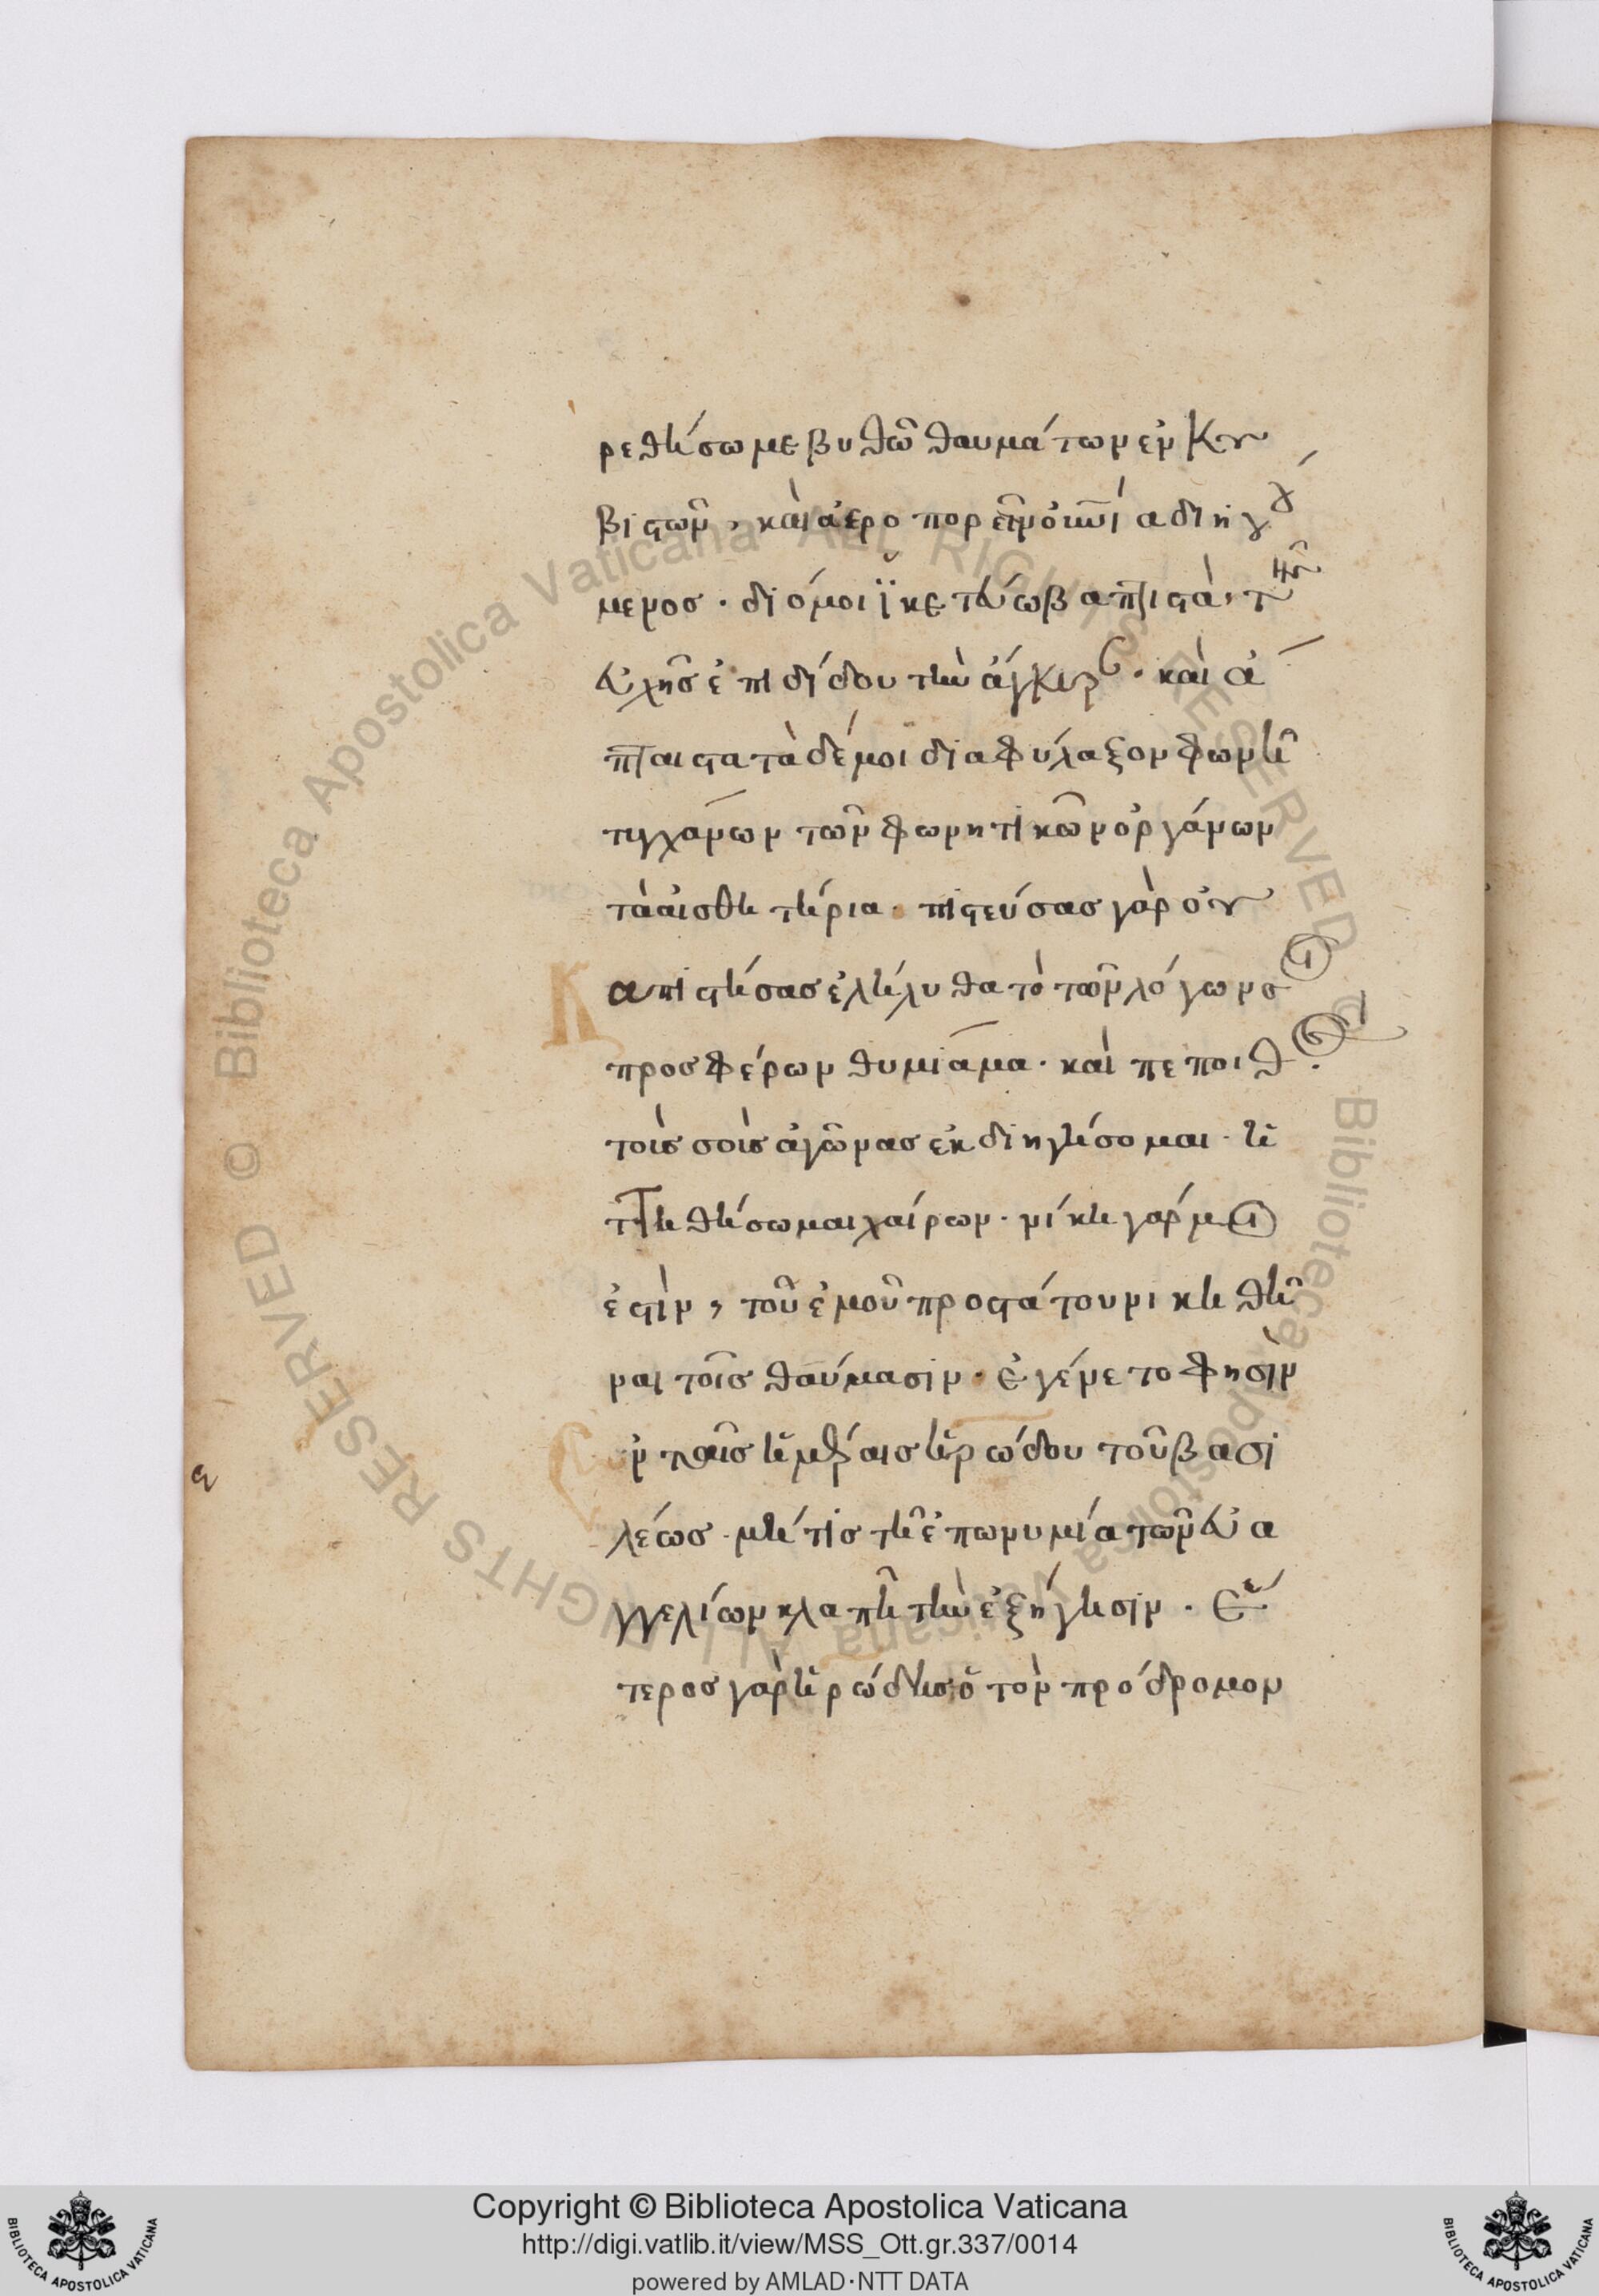 ρεθήσωμε βυθῶ θαυμάτων ἐν κυ
βιστῶν, καὶ ἀερο πορεῖν
μενος. διό μοι ϊκετεύω βαπτιστὰ, τῆς
εὐχῆς ἐπιδίδου τὴν ἄγκυραν. καὶ ἄ
πταιστα τὰ δέ μοι διαφύλαξον φωνῆ
τυγχάνων τῶν φωνητικῶν ὀργάνων
τὰ αἰσθητήρια. πιστεύσας γὰρ οὐκ
ἀπιστήσας ἐλήλυθα τὸ τῶν λόγων σοι
προσφέρων θυμίαμα. καὶ πεποιθὼς
τοῖς σοῖς ἀγῶνας ἐκδιηγήσομαι. ἡ
ττηθήσωμαι χαίρων. νίκη γάρ μοι
ἐστὶν, τοῦ ἐμοῦ προστάτου νικηθῆ
ναι τοῖς θαύμασιν. ἐγένετο φησὶν
ἐν ταῖς ἡμέραις ἡρώδου τοῦ βασι
λέως. μή τις τῆ ἐπωνυμία τῶν εὐα
γγελίων κλαπῆ τὴν ἐξήγησιν. ἕ
τερος γὰρ ἡρώδης ὁ τὸν πρόδρομον
Copyright © Biblioteca Apostolica Vaticana
http://digi.vatlib.it/view/MSS_Ott.gr.337/0014
powered by AMLAD·NTT DATA